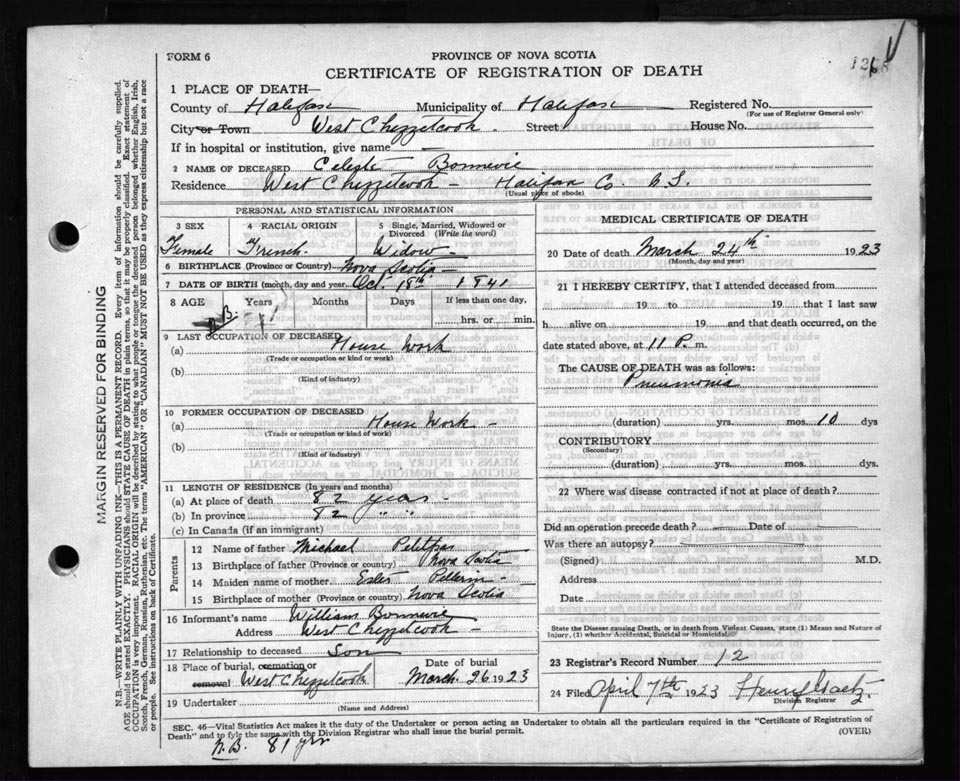 FORM 6
PROVINCE OF NOVA SCOTIA
CERTIFICATE OF REGISTRATION OF DEATH
1268
1 PLACE OF DEATH—
County of Halifax Municipality of Halifax Registered No.
(For use of Registrar General only)
City or Town West Chezzetcook. Street House No.
If in hospital or institution, give name —
2 NAME OF DECEASED Celeste Bonnevie
Residence West Chezzetcook - Halifax Co. N.S.
(Usual place of abode)
PERSONAL AND STATISTICAL INFORMATION
3 SEX 4 RACIAL ORIGIN 5 Single, Married, Widowed or Divorced (Write the word)
Female French. Widow
6 BIRTHPLACE (Province or Country) Nova Scotia
7 DATE OF BIRTH (month, day and year) Oct. 18th 1841
8 AGE Years Months Days If less than one day,
N.B. 81
hrs. or min.
9 LAST OCCUPATION OF DECEASED
(a) House Work
(Trade or occupation or kind or work)
(b)
(Kind of industry)
10 FORMER OCCUPATION OF DECEASED
(a) House Work -
(Trade or occupation or kind of work)
(b)
(Kind of industry)
11 LENGTH OF RESIDENCE (In years and months)
(a) At place of death 82 years -
(b) In province 82 " "
(c) In Canada (if an immigrant)
Parents
12 Name of father Michael Petitpas
13 Birthplace of father (Province or country) Nova Scotia
14 Maiden name of mother Ester Pellerin -
15 Birthplace of mother (Province or country) Nova Scotia
16 Informant's name William Bonnevie
Address West Chezzetcook -
17 Relationship to deceased Son
18 Place of burial, cremation or removal West Chezzetcook
Date of burial March 26 1923
19 Undertaker
(Name and Address)
MEDICAL CERTIFICATE OF DEATH
20 Date of death March 24th 1923
(Month, day and year)
21 I HEREBY CERTIFY, that I attended deceased from
19 to 19 that I last saw
h alive on 19 and that death occurred, on
date stated above, at 11 P. m.
The CAUSE OF DEATH was as follows:
Pneumonia
(duration) yrs. mos. 10 dys
CONTRIBUTORY
(Secondary)
(duration) yrs. mos. dys.
22 Where was disease contracted if not at place of death?
Did an operation precede death? Date of
Was there an autopsy?
(Signed) M.D.
Address
Date
State the Disease causing Death, or in death from Violent Causes, state (1) Means and Nature of Injury, (2) whether Accidental, Suicidal or Homicidal.
23 Registrar's Record Number 12
24 Filed April 7th 1923 Henry
Division Registrar
SEC. 46—Vital Statistics Act makes it the duty of the Undertaker or person acting as Undertaker to obtain all the particulars required in the "Certificate of Registration of
Death" and to fyle the same with the Division Registrar who shall issue the burial permit. (OVER)
N.B. 81 yrs
MARGIN RESERVED FOR BINDING
N.B.—WRITE PLAINLY WITH UNFADING INK—THIS IS A PERMANENT RECORD. Every item of information should be carefully supplied.
AGE should be stated EXACTLY. PHYSICIANS should STATE CAUSE OF DEATH in plain terms, so that it may be properly classified. Exact statement of
OCCUPATION is very important. RACIAL ORIGIN will be described by stating to what people or tongue the deceased person belonged whether English, Irish,
Scotch, French, German, Russian, Ruthenian, etc. The terms "AMERICAN" OR "CANADIAN" MUST NOT BE USED as they express citizenship but not a race
or people. See instructions on back of Certificate.